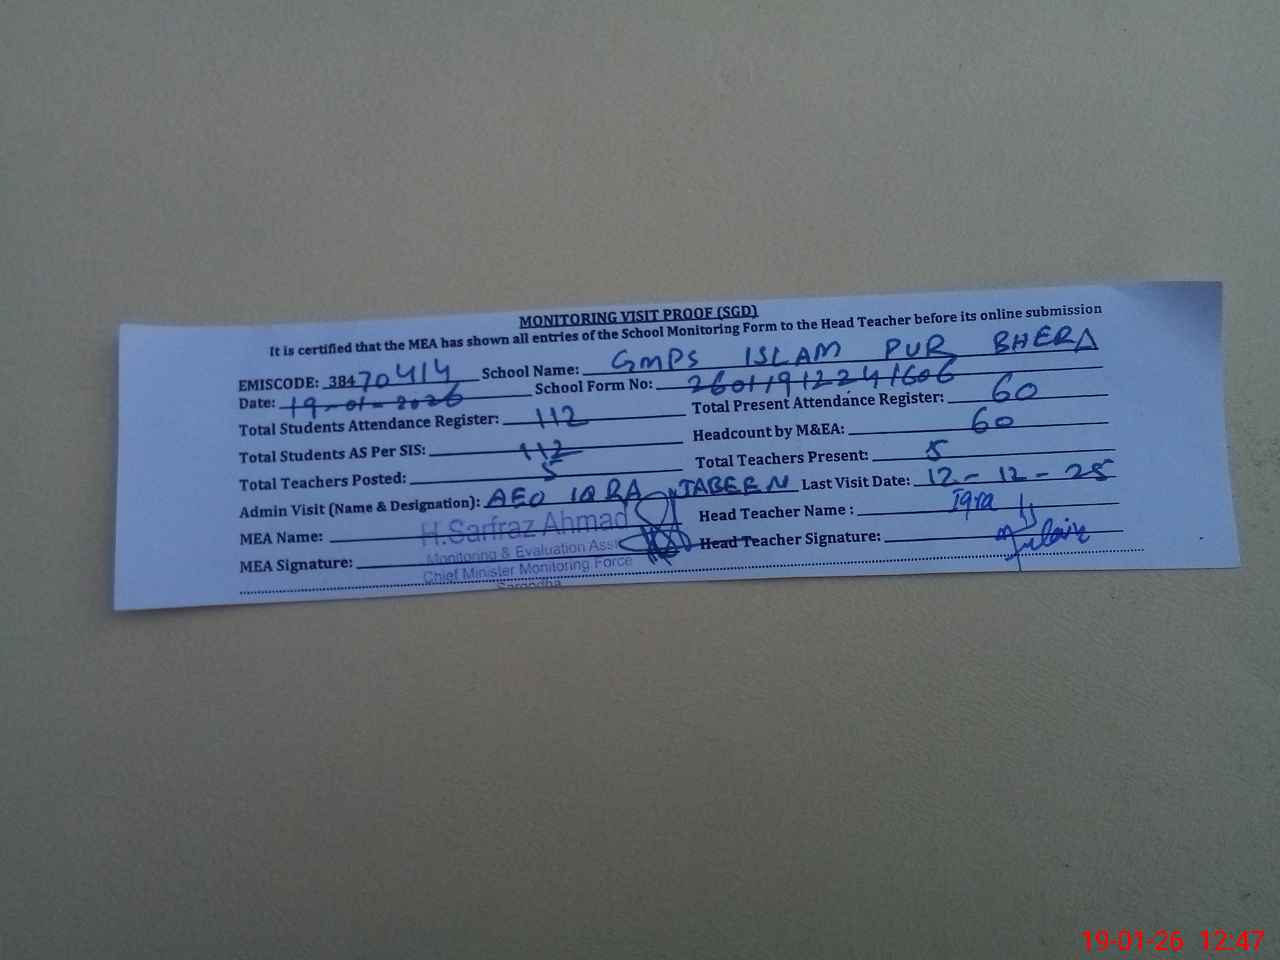 MONITORING VISIT PROOF (SGD)
It is certified that the MEA has shown all entries of the School Monitoring Form to the Head Teacher before its online submission
EMISCODE: 38470414 School Name: GMPS ISLAM PUR BHERA
Date: 19-01-2026 School Form No: 26011912241606
Total Students Attendance Register: 112 Total Present Attendance Register: 60
Total Students AS Per SIS: 112 Headcount by M&EA: 60
Total Teachers Posted: 5 Total Teachers Present: 5
Admin Visit (Name & Designation): AEO IQRA JABEEN Last Visit Date: 12-12-25
MEA Name: H.Sarfraz Ahmad Head Teacher Name : Iqra
Monitoring & Evaluation Asst
MEA Signature: Head Teacher Signature:
Chief Minister Monitoring Force
Sargodha
19-01-26 12:47